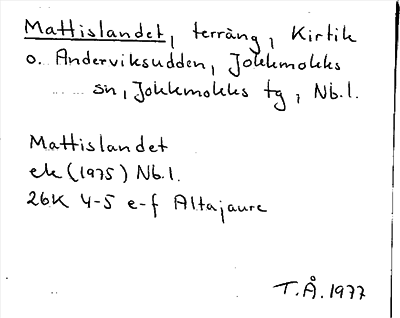 Mattislandet, terräng, Kirtik
o. Anderviksudden, Jokkmokks
sn, Jokkmokks tg, Nb.l.
Mattislandet
ek (1975) Nb.l.
26K 4-5 e-f Altajaure
T.Å. 1977